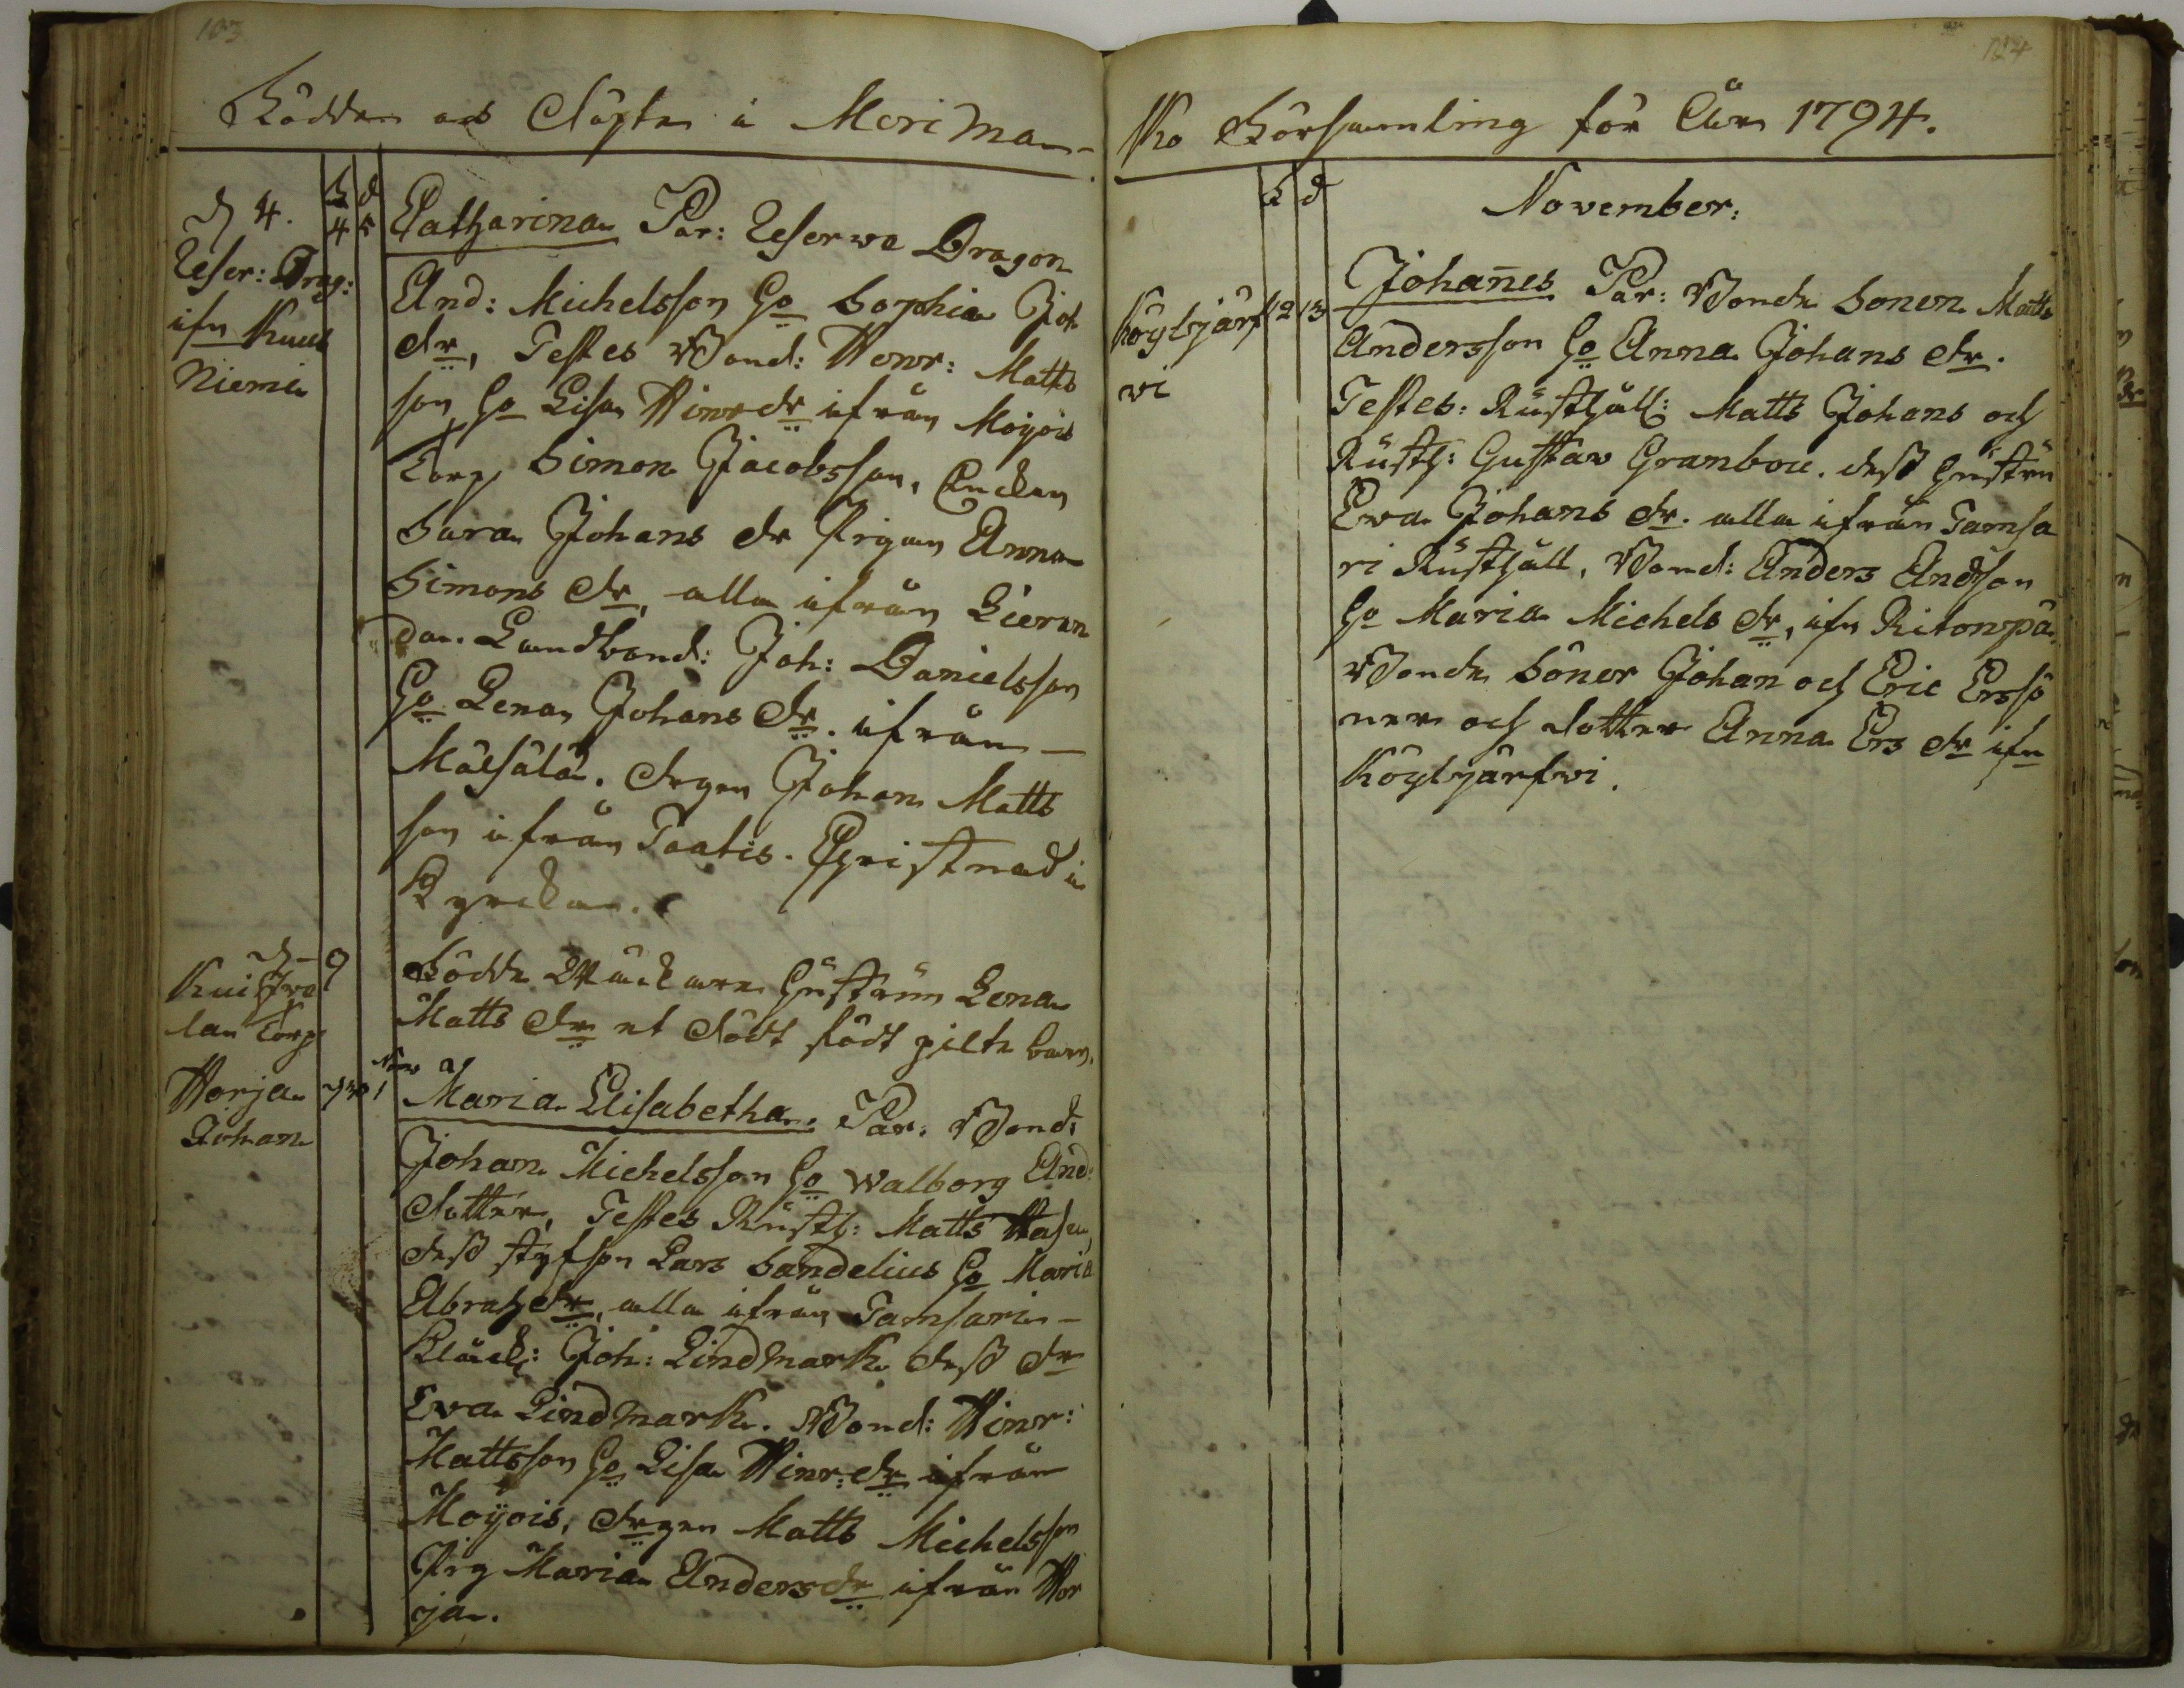 103
Födde och Döpte i MeriMa-
d 4.
f d
4 5
Reser: Drag:
ifn Kuus
Niemi
Catharina Par: Reserve Dragon
And: Michelsson Ho Sophia Joh
dr, Testes Bond: Henr: Matts
son Ho Lisa Hinrsdr ifrån Moÿois
Torp Simon Jacobsson, Enckan
Sara Johans dr Pigan Anna
Simons dr, alla ifrån Lieran
dan. Landbond: Joh: Danielsson
Ho Lena Johans dr. ifrån
Mälsälä. Drgen Johan Matts
son ifrån Paatis. Christnad i
Kyrckan.
d - 9
Kui
lan Torp
Födde Hustrun Lena
Matts dr et dödt födt pilte barn.
Nov
Horja
Johan
30 1
Maria Elisabetha. Par: Bond:
Johan Michelsson Ho Walborg And:
dotter, Testes Rusth: Matts
dess styfson Lars Sandelius Ho Maria
Abrah dr, alla ifrån Tamsari
Klåck: Joh: Lindmark dess dr
Eva Lindmark. Bond: Hinr:
Mattsson Ho Lisa Hinr: dr ifrån
Moÿois, Drgen Matts Michelsson
Pig Maria Anders dr ifrån Hor
ja.
124
ko Församling för År 1794.
f d
November.
Köyljärf
wi
12 13
Johañes Par: Bonde Sonen Matts
Andersson Ho Anna Johans dr.
Testes: Rusthåll: Matts Johans och
Rusth: Gustav Granbou. dess hustru
Eva Johans dr. alla ifrån Tamsa
ri Rusthåll, Bond: Anders Andsson
Ho Maria Michels dr, ifn Ritonpä.
Bonde Söner Johan och Eric Ersö
ner och dotter Anna Ers dr ifn
Köyljärfwi.